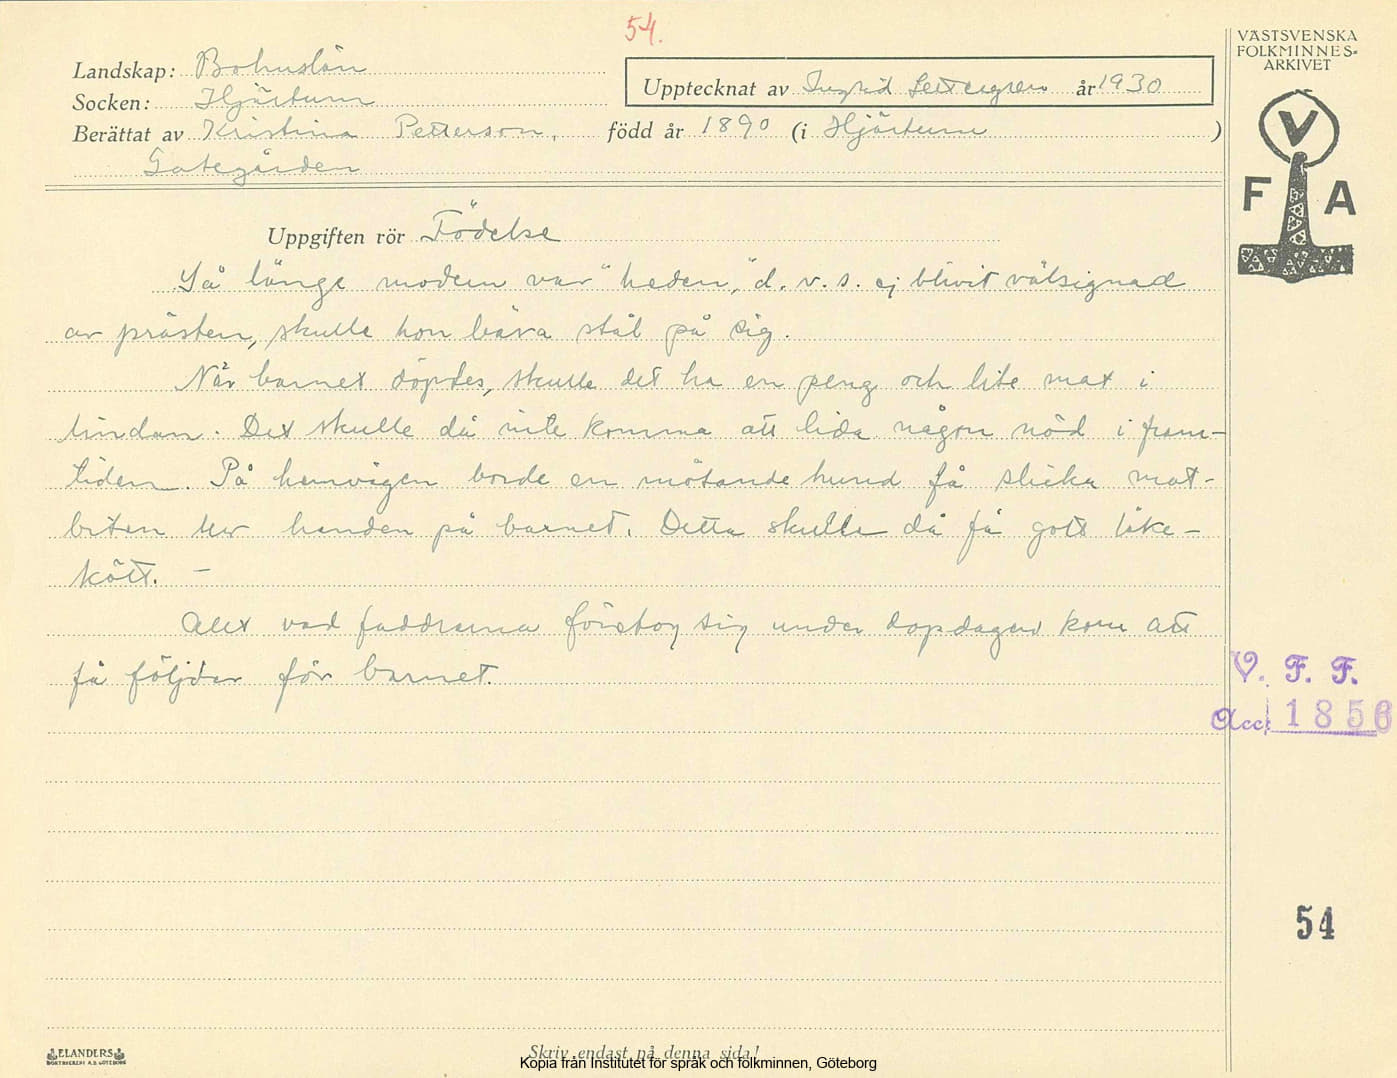 54.
VÄSTSVENSKA
FOLKMINNES-
ARKIVET
Landskap: Bohuslän
Upptecknat av Ingrid Settergren år 1930
Socken: Hjärtum
Berättat av Kristina Petterson, född år 1890 (i Hjärtum )
Gategården
V
F A
Uppgiften rör Födelse
Så länge modern var "heden," d. v. s. ej blivit välsignad
av prästen, skulle hon bära stål på sig.
När barnet döptes, skulle det ha en peng och lite mat i
lindan. Det skulle då inte komma att lida någon nöd i fram-
tiden. På hemvägen borde en mötande hund få slicka mat-
biten ur handen på barnet. Detta skulle då få gott läke-
kött. -
Allt vad faddrarna företog sig under dopdagen kom att
få följder för barnet.
V. F. F.
Acc: 1856
54
ELANDERS
BOKTRYCKERI A.B. GÖTEBORG
Skriv endast på denna sida!
Kopia från Institutet för språk och folkminnen, Göteborg